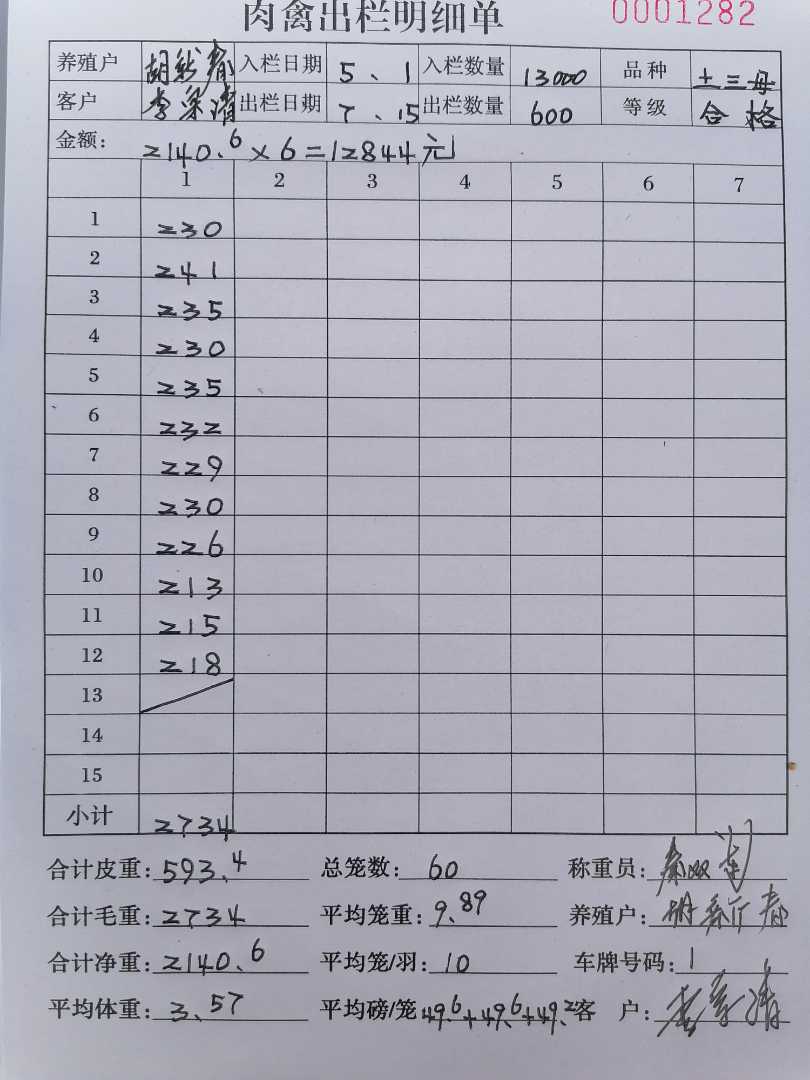 肉禽出栏明细单 0001282
养殖户 胡 春 入栏日期 5、1 入栏数量 13000 品种 土三母
客户 李 清 出栏日期 7、15 出栏数量 600 等级 合格
金额: 2140.6×6=12844元
1 2 3 4 5 6 7
1 230
2 241
3 235
4 230
5 235
6 232
7 229
8 230
9 226
10 213
11 215
12 218
13
14
15
小计 2734
合计皮重: 593.4 总笼数: 60 称重员: 秦双
合计毛重: 2734 平均笼重: 9.89 养殖户: 胡 春
合计净重: 2140.6 平均笼/羽: 10 车牌号码: 1
平均体重: 3.57 平均磅/笼 49.6+49.6+49.2 客 户: 李 清